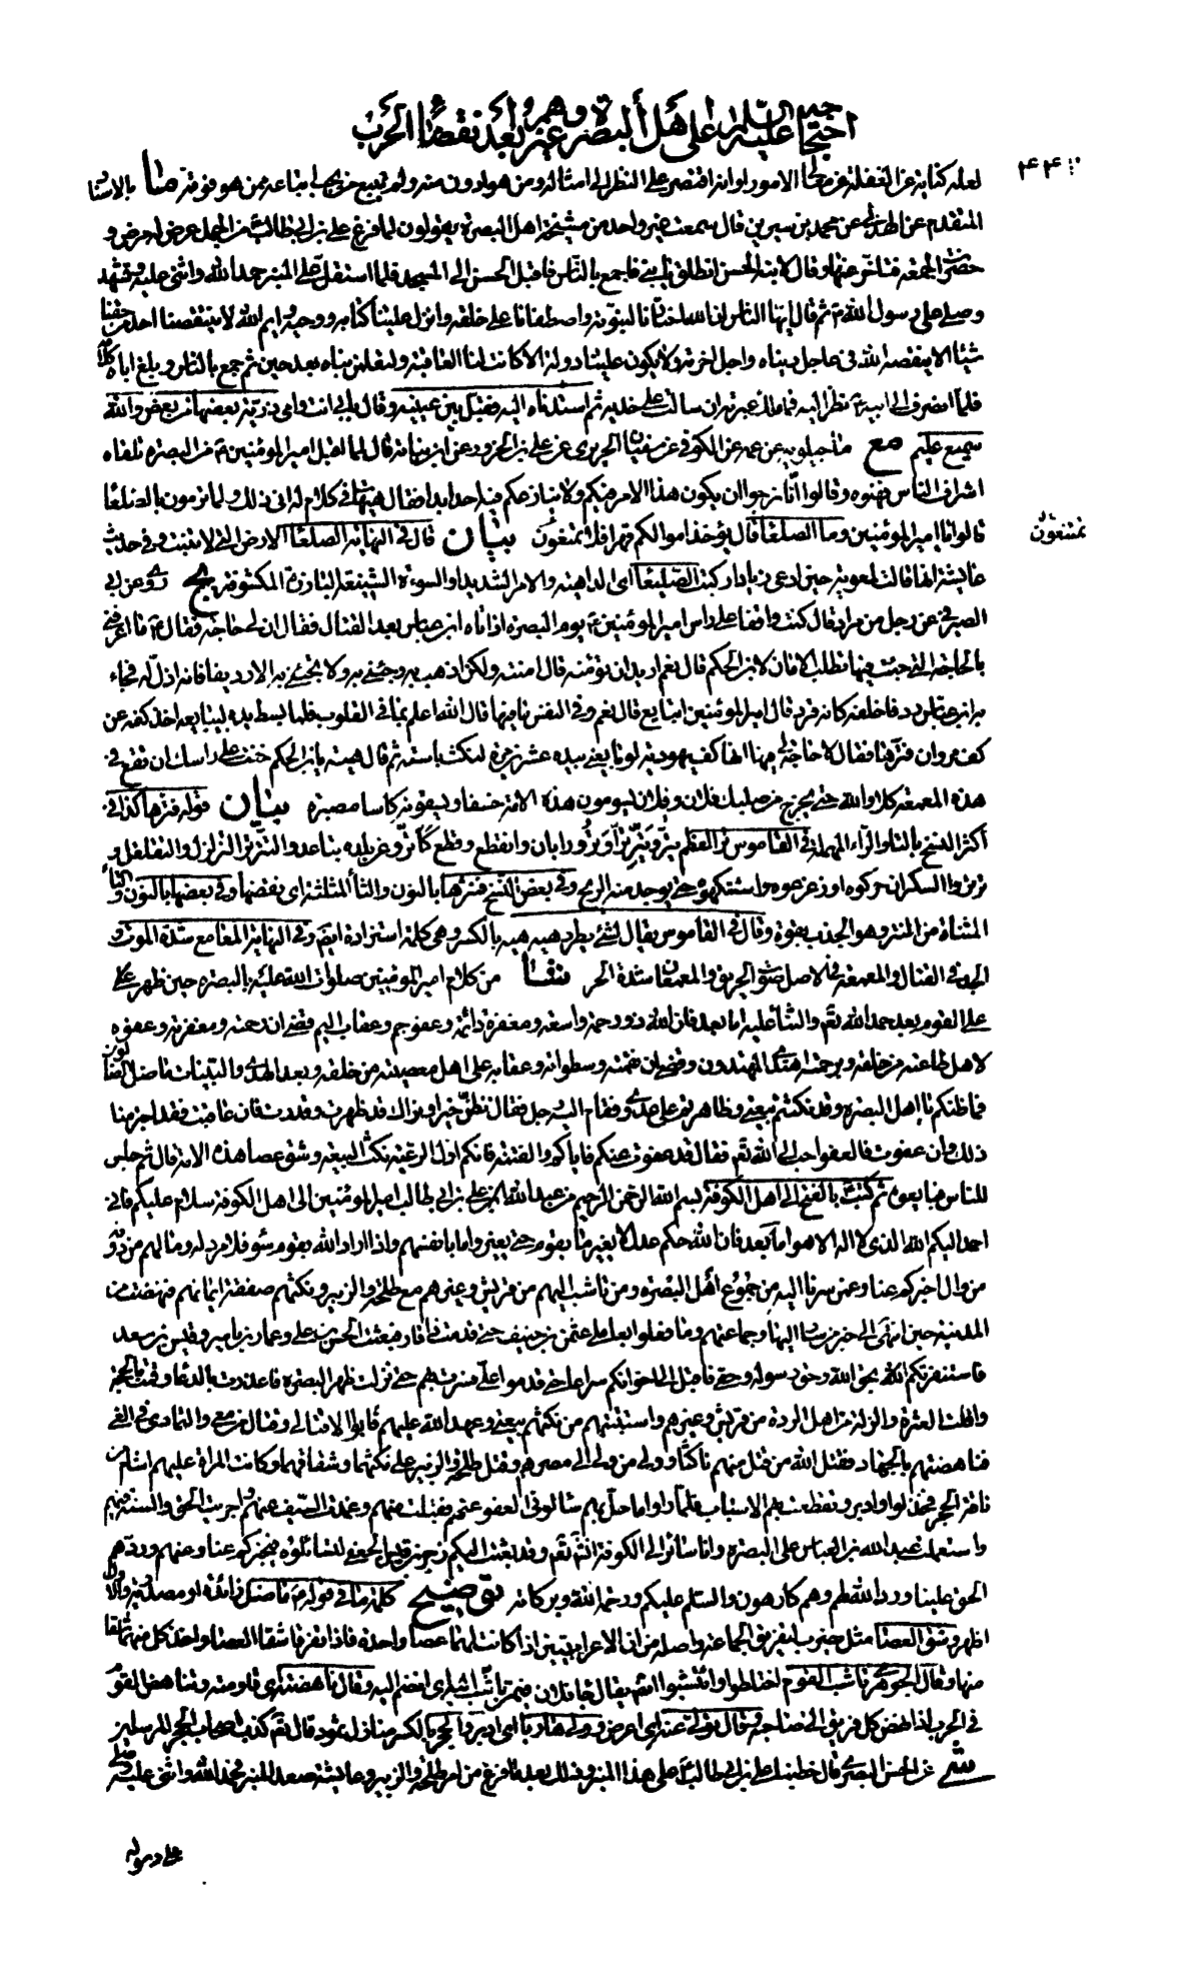 احتجاجه عليه السلام على أهل البصرة وغيرهم بعد انقضاء الحرب
۴۴۰
لعله كناية عن الغفلة عن معالي الامور او انه اقتصر على النظر الى امثاله ومن هو ادون منه ولم يتبع اتباعه ممن هو فوقه ما بالاسناد
المتقدم عن الهذلي عن محمد بن سيرين قال سمعت غير واحد من مشيخة اهل البصرة يقولون لما فرغ علي بن ابي طالب من الجمل عرض له مرض و
حضرت الجمعة فتاخر عنها وقال لابنه الحسن انطلق يا بني فاجمع بالناس فاقبل الحسن الى المسجد فلما استقل على المنبر حمد الله واثنى عليه وتشهد
وصلى على رسول الله ص ثم قال ايها الناس ان الله اختارنا لنبوته واصطفانا على خلقه وانزل علينا كتابه ووحيه وايم الله لا ينتقصنا احد من حقنا
شيئا الا ينقصه الله في عاجل دنياه واجل اخرته ولا يكون علينا دولة الا كانت لنا العاقبة ولتعلمن نباه بعد حين ثم جمع بالناس وبلغ اباه كلامه
فلما انصرف الى ابيه ع نظر اليه فما ملك عبرته ان سالت على خديه ثم استدناه اليه فقبل بين عينيه وقال بابي انت وامي ذرية بعضها من بعض والله
سميع عليم مع ماجيلويه عن عمه عن الكوفي عن سفيان الحريري عن علي بن الحزور عن ابن نباتة قال لما اقبل امير المؤمنين ع من البصرة تلقاه
اشراف الناس فهنوه وقالوا انا نرجو ان يكون هذا الامر فيكم ولا ينازعكم فيه احد ابدا فقال هيهات في كلام له انى ذلك ولما ترمون بالصلعا
قالوا يا امير المؤمنين وما الصلعا قال يؤخذ اموالكم قهرا فلا تمنعون بيان قال في النهاية الصلعا الارض التي لا تنبت وفي حديث
تمتنعون
عايشة انها قالت لمعوية حين ادعى زيادا ركبت الصليعا اى الداهية والامر الشديد او السوءة الشنيعة البارزة المكشوفة يج روى عن ابي
الصيرفي عن رجل من مراد قال كنت واقفا على راس امير المؤمنين ع يوم البصرة اذ اتاه ابن عباس بعد القتال فقال ان لي حاجة فقال ع ما اعرفني
بالحاجة التي جئت فيها تطلب الامان لابن الحكم قال نعم اريد ان تؤمنه قال امنته ولكن اذهب به وجئني به ولا تجئني به الا رديفا فانه اذل له فجاء
به ابن عباس ردفا خلفه كانه قرد قال امير المؤمنين اتبايع قال نعم وفي النفس ما فيها قال الله اعلم بما في القلوب فلما بسط يده ليبايعه اخذ كفه عن
كف مروان فترها فقال لا حاجة لي فيها انها كف يهودية لو بايعني بيده عشرين مرة لنكث باسته ثم قال هيه يا بن الحكم خفت على راسك ان تقع في
هذه المعمعة كلا والله حتى يخرج من صلبك فلان وفلان يسومون هذه الامة خسفا ويسقونه كاسا مصبرة بيان قوله فترها كذا في
اكثر النسخ بالتاء والراء المهملة في القاموس تر العظم يتر ويتر ترا وترورا بان وانقطع وقطع كاتر وعن بلده تباعد والتترتر التزلزل والتقلقل و
ترتروا السكران حركوه او زعزعوه واستنكهوه حتى يوجد منه الريح وفي بعض النسخ فنثرها بالنون والثاء المثلثة اى نفضها وفي بعضها بالنون والتاء
المثناة من النتر وهو الجذب بقوة وقال في القاموس يقال لشئ يطرد هيه هيه بالكسر وهي كلمة استزادة ايضا وفي النهاية المعامع شدة الموت و
الجد في القتال والمعمعة في الاصل صوت الحريق والمعمعان شدة الحر شا من كلام امير المؤمنين صلوات الله عليه بالبصرة حين ظهر على
على القوم بعد حمد الله تعالى والثناء عليه اما بعد فان الله ذو رحمة واسعة ومغفرة دائمة وعفو جم وعقاب اليم قضى ان رحمته ومغفرته وعفوه
لاهل طاعته من خلقه وبرحمته اهتدى المهتدون وقضى ان نقمته وسطواته وعقابه على اهل معصيته من خلقه وبعد الهدى والبينات ما ضل الضالون
فما ظنكم يا اهل البصرة وقد نكثتم بيعتي وظاهرتم علي عدوي فقام اليه رجل فقال نظن خيرا ونراك قد ظهرت وقدرت فان عاقبت فقد اجترمنا
ذلك وان عفوت فالعفو احب الى الله تعالى فقال قد عفوت عنكم فاياكم والفتنة فانكم اول الرعية نكث البيعة وشق عصا هذه الامة قال ثم جلس
للناس فبايعوه ثم كتب بالفتح الى اهل الكوفة بسم الله الرحمن الرحيم من عبد الله علي بن ابي طالب امير المؤمنين الى اهل الكوفة سلام عليكم فاني
احمد اليكم الله الذي لا اله الا هو اما بعد فان الله حكم عدل لا يغير ما بقوم حتى يغيروا ما بانفسهم واذا اراد الله بقوم سوءا فلا مرد له وما لهم من دونه
من وال اخبركم عنا وعمن سرنا اليه من جموع اهل البصرة ومن تاشب اليهم من قريش وغيرهم مع طلحة والزبير ونكثهم صفقة ايمانهم فنهضت من
المدينة حين انتهى الى خبر من سار اليها وجماعتهم وما فعلوا بعاملي عثمن بن حنيف حتى قدمت ذا قار فبعثت الحسن بن علي وعمار بن ياسر وقيس بن سعد
فاستنفرتكم بحق الله وحق رسوله وحقي فاقبل الى اخوانكم سراعا حتى قدموا علي فسرت بهم حتى نزلت ظهر البصرة فاعذرت بالدعا وقمت بالحجة
واقلت العثرة والزلة من اهل الردة من قريش وغيرهم واستتبتهم من نكثهم بيعتي وعهد الله عليهم فابوا الا قتالي وقتال من معي والتمادي في الغي
فناهضتهم بالجهاد فقتل الله من قتل منهم ناكثا وولى من ولى الى مصرهم وقتل طلحة والزبير على نكثهما وشقاقهما وكانت المراة عليهم اشام من
ناقة الحجر فخذلوا وادبروا وتقطعت بهم الاسباب فلما راوا ما حل بهم سالوني العفو عنهم فقبلت منهم وغمدت السيف عنهم واجريت الحق والسنة فيهم
واستعملت عبد الله بن العباس على البصرة وانا سائر الى الكوفة انشاء الله تعالى وقد بعثت اليكم زحر بن قيس الجعفي لتسائلوه فيخبركم عنا وعنهم وردهم
الحق علينا ورد الله لهم وهم كارهون والسلام عليكم ورحمة الله وبركاته توضيح كلمة ما في قوله ع ما ضل زائدة او مصدرية والاول
اظهر وشق العصا مثل ضرب لتفريق الجماعة واصله من ان الاعرابيتين اذا كانت لهما عصا واحدة فاذا تفرقا شقا العصا واخذ كل منهما شقا
منها وقال الجوهري تاشب القوم اختلطوا وائتشبوا ايضا يقال جاء فلان فيمن تاشب اليه اى انضم اليه وقال ناهضته اى قاومته وتناهض القوم
في الحرب اذا نهض كل فريق الى صاحبه وقال تولى عنه اى اعرض وولى هاربا اى ادبر والحجر بالكسر منازل ثمود قال تعالى كذب اصحاب الحجر المرسلين
شى عن الحسن البصري قال خطبنا علي بن ابي طالب ع على هذا المنبر وذلك بعد ما فرغ من امر طلحة والزبير وعايشة صعد المنبر فحمد الله واثنى عليه وصلى
على رسوله